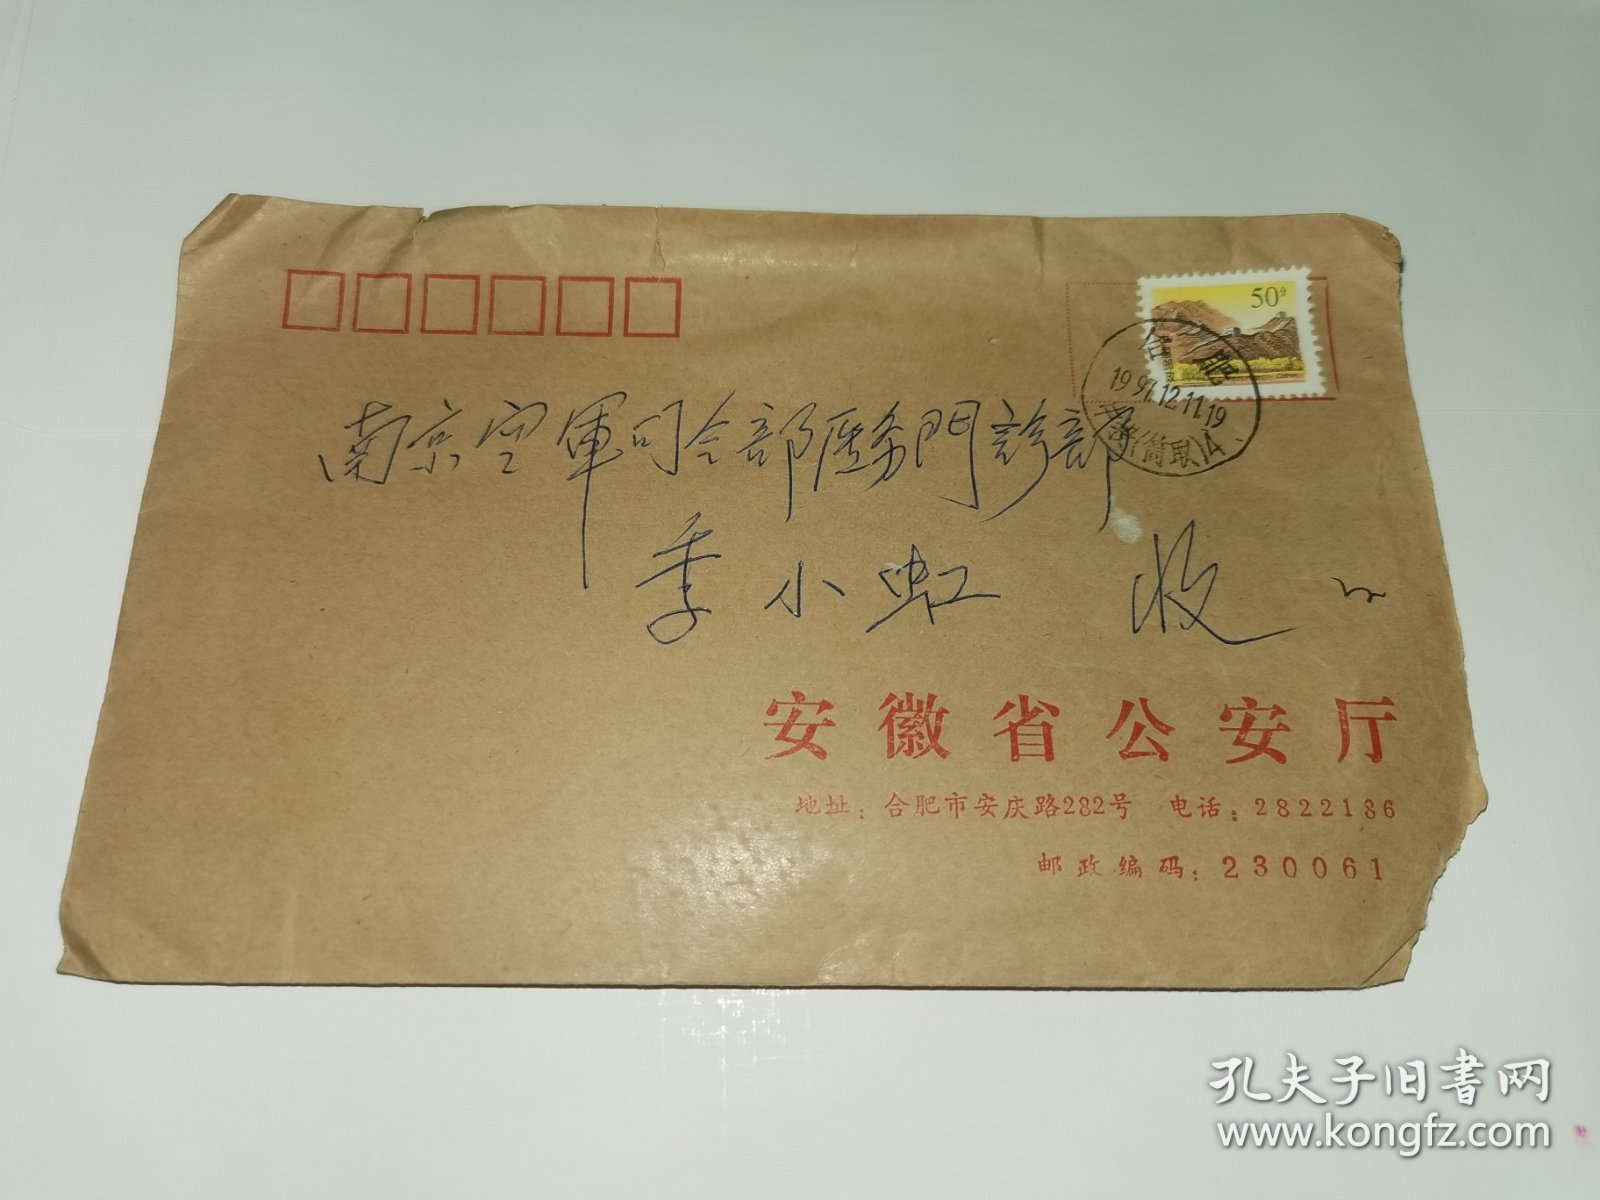 50分
合肥
1997.12.11.19
(筒取)14
南京空軍司令部医务門診部
季小虹 收
安徽省公安厅
地址：合肥市安庆路282号 电话：2822186
邮政编码：230061
孔夫子旧书网
www.kongfz.com